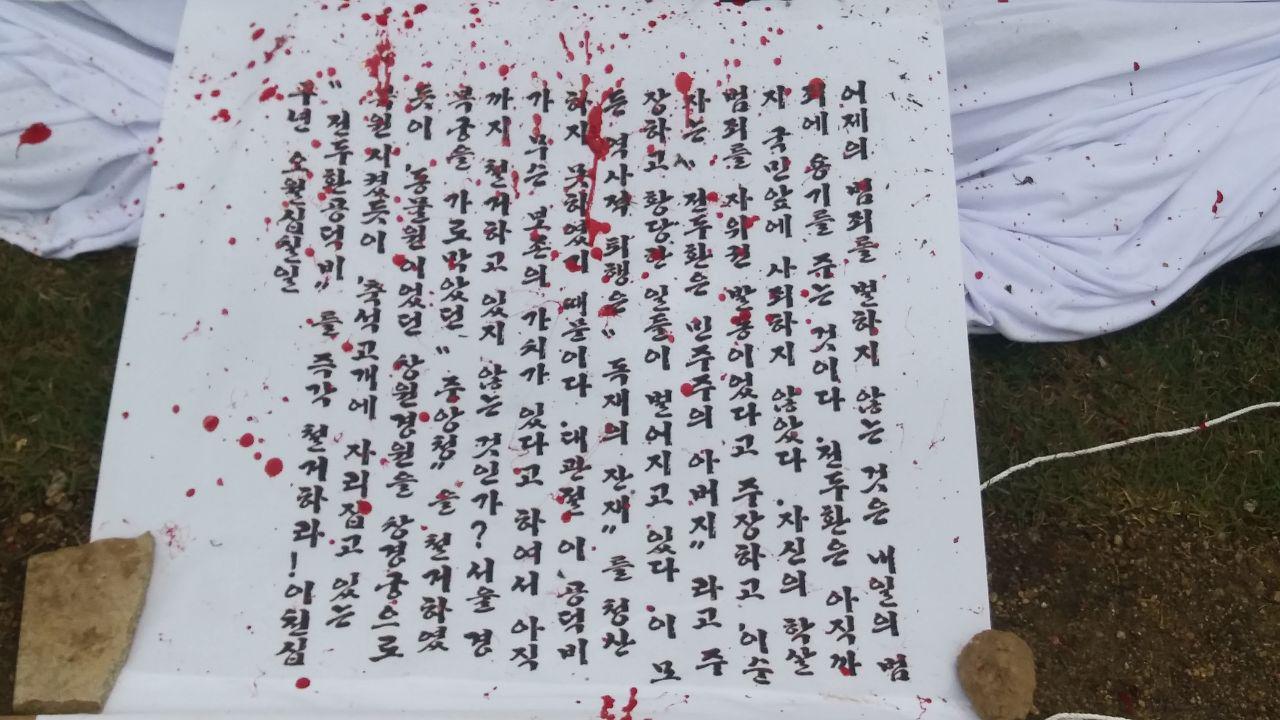 어제의 범죄를 벌하지 않는 것은 내일의 범
죄에 용기를 주는 것이다 .전두환은 아직까
지 국민앞에 사죄하지 않았다 .자신의 학살
범죄를 자위권 발동이었다고 주장하고 ,이순
자는 “ 전두환은 민주주의 아버지” 라고 주
장하고 황당한 일들이 벌어지고 있다 이 모
든 역사적 퇴행은 “ 독재의 잔재” 를 청산
하지 못하였기 때문이다 .대관절 이 ,공덕비
가 무슨 보존의 가치가 있다고 하여서 아직
까지 철거하고 있지 않는 것인가? 서울 경
복궁을 가로막았던 “중앙청” 을 철거하였
듯이 ,동물원이었던 창원경원을 창경궁으로
복원시켰듯이 ,축석고개에 자리잡고 있는
“전두환공덕비” 를 즉각 철거하라! 이천십
구년 오월십칠일